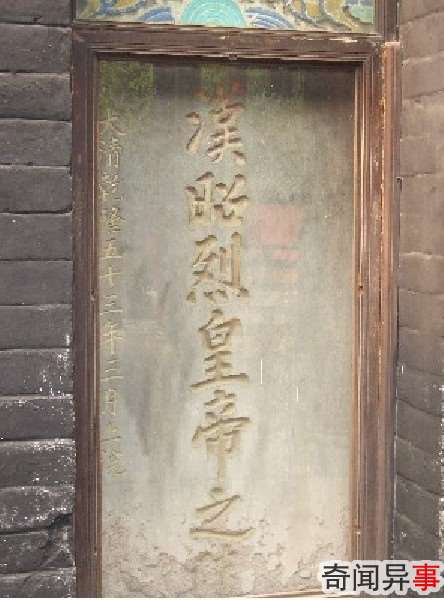 漢昭烈皇帝之
大清乾隆五十三年三月上浣
奇闻异事